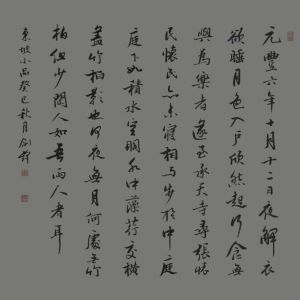 元豐六年十月十二日夜解衣
欲睡月色入户欣然起行念無
與為樂者遂至承天寺尋張懷
民懷民亦未寢相與步於中庭
庭下如積水空明水中藻荇交橫
蓋竹柏影也何夜無月何處无竹
柏但少閑人如吾兩人者耳
東坡小品癸巳秋月